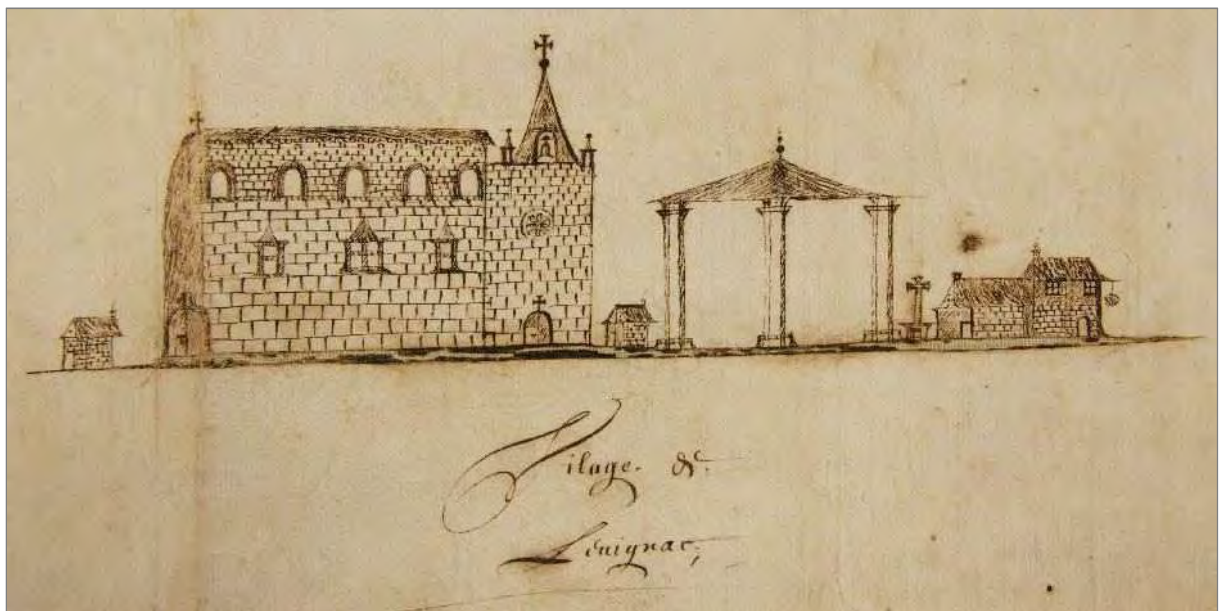 Vilage. de.
Leuignac;